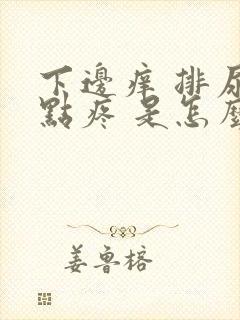 下邊痒 排尿
點疼 是怎麼
姜魯榕